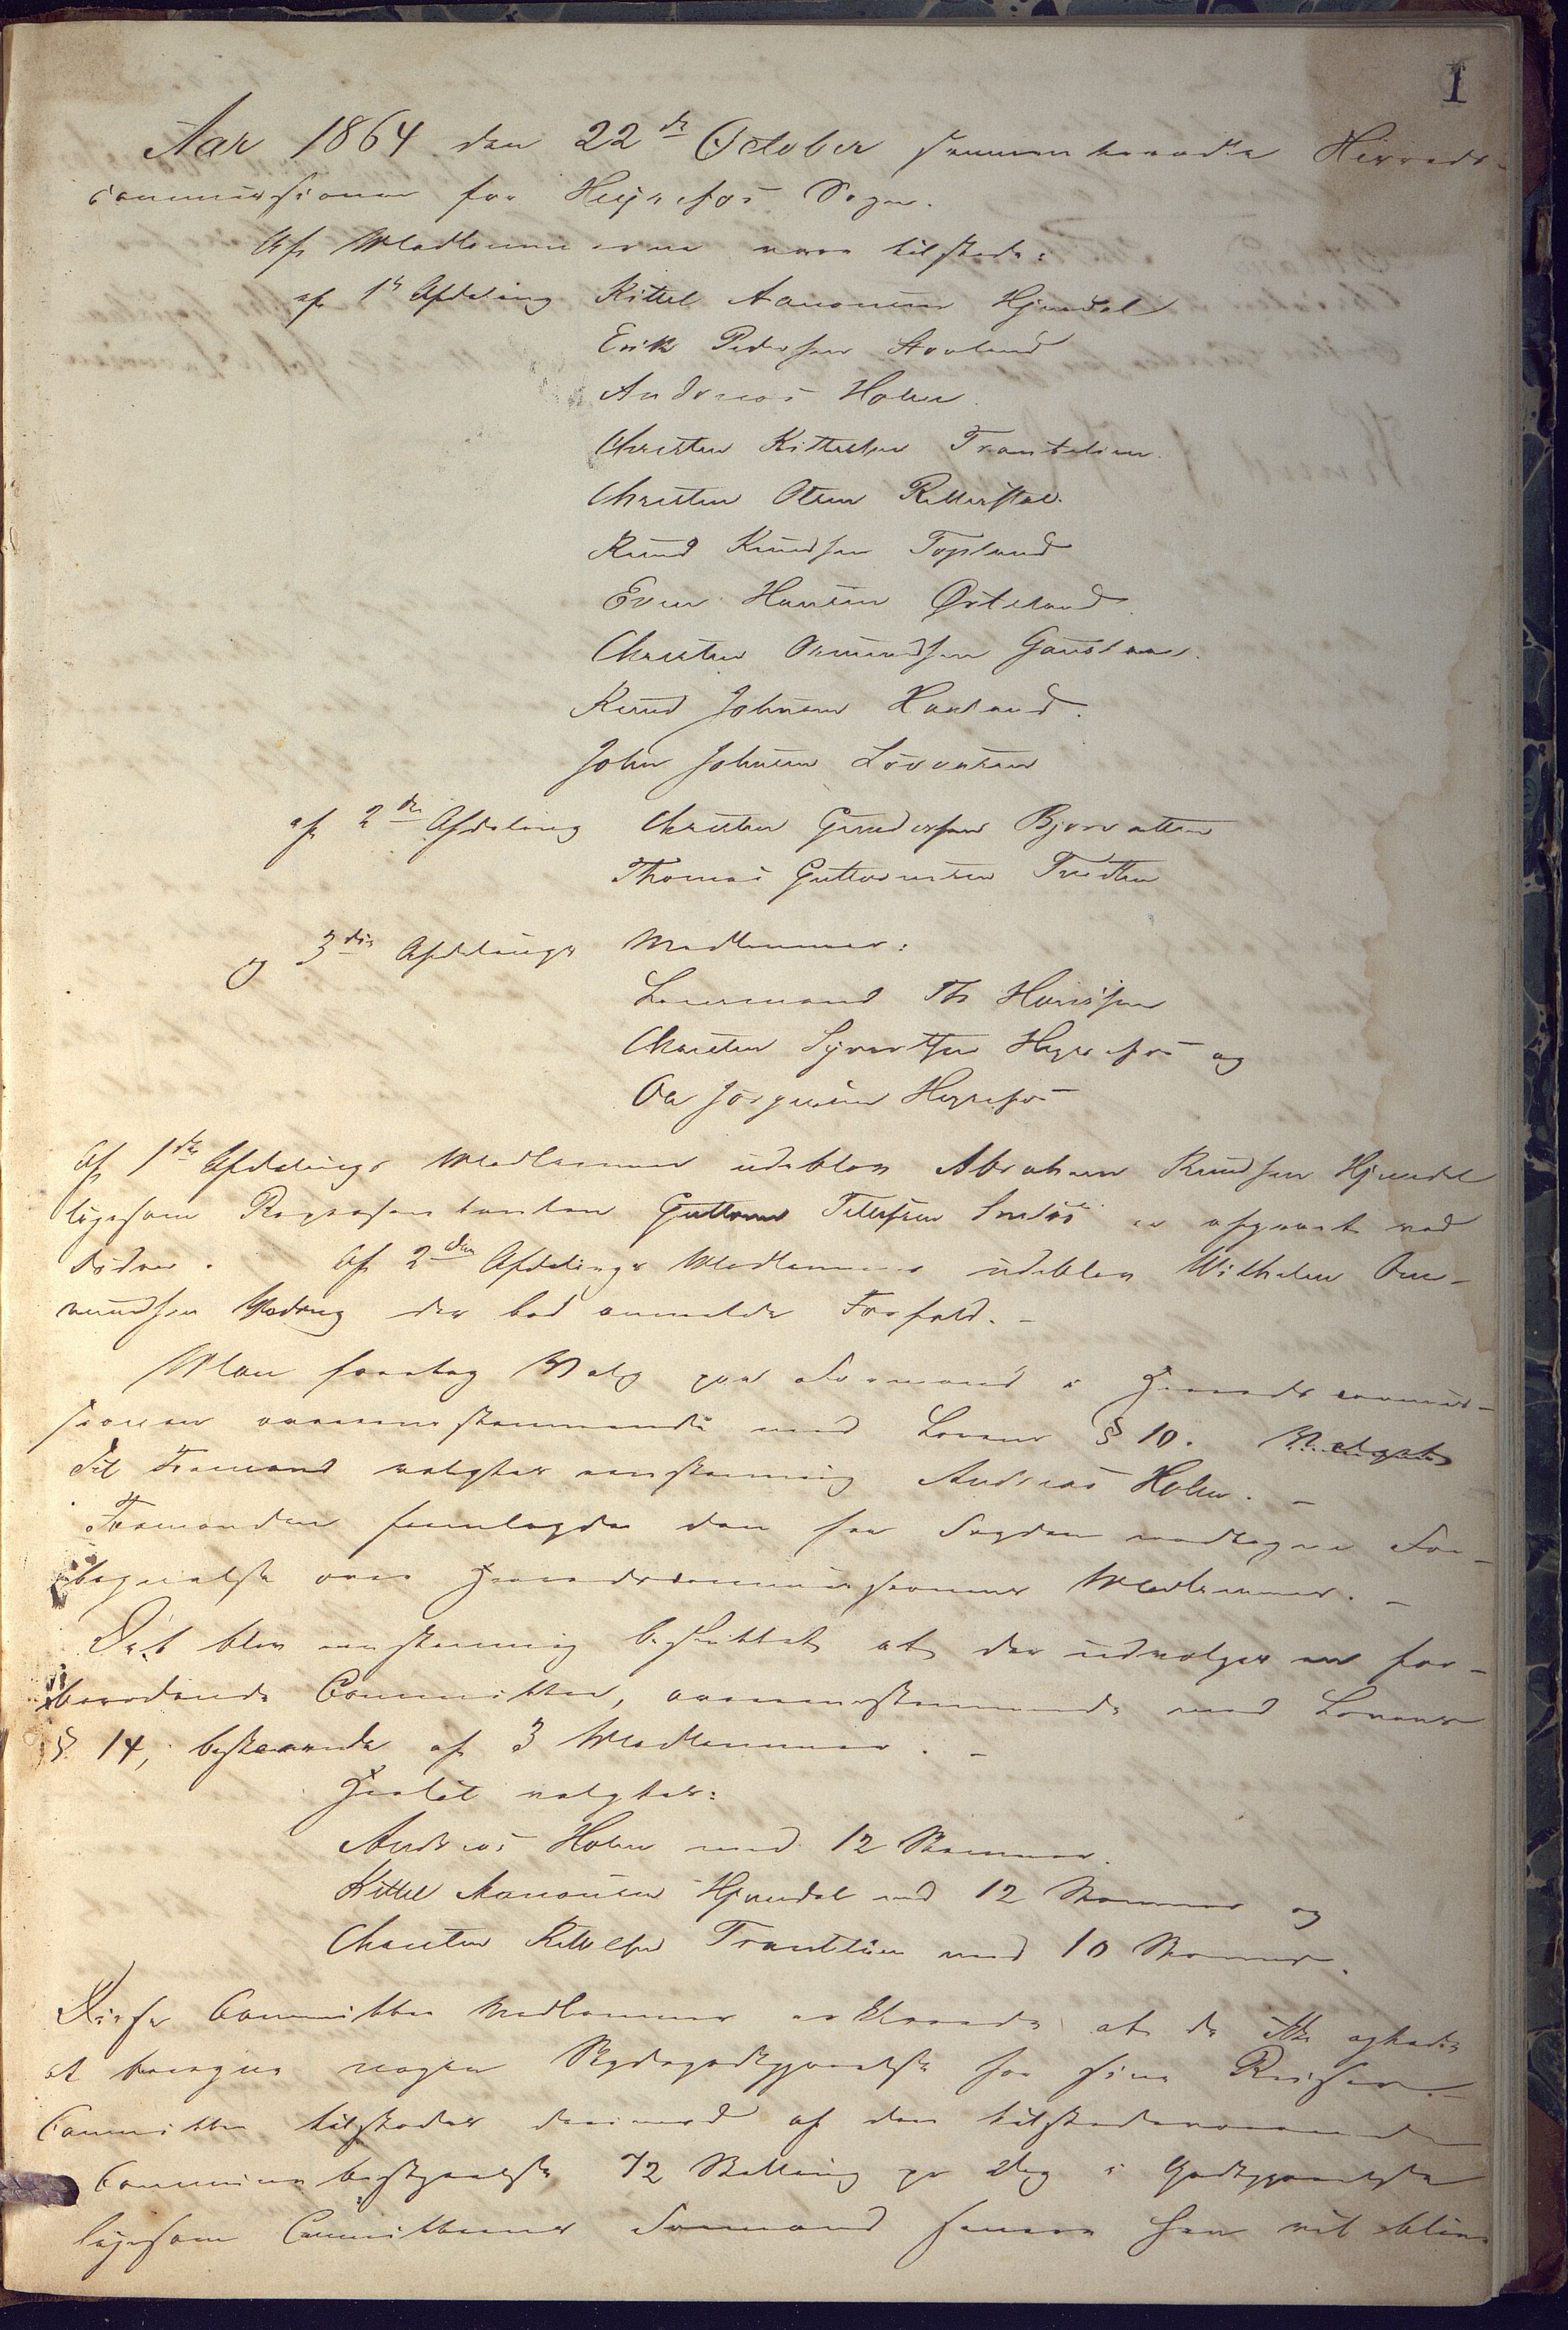 1
Aar 1864 den 22de October sammentraadte Herreds-
commissionen for Heyrefos Sogn.
Af Medlemmerne vare tilstede:
af 1ste Afdeling Kittel Aanonsen Hjuvdal
Erik Pedersen Aavland
Andreas Holm.
Christen Kittelsen Tranteliien.
Christen Olsen
Knud Knudsen Topland
Even Hansen
Christen Osmundsen
Knud Johnsen Havland.
John Johnsen
af 2den Afdeling Christen Gundersen Bjorvatten
Thomas Guttormsen Tvedten
og 3die Afdelings Medlemmer:
Lensmand Th
Christen Syvertsen Heyrefos og
Ole Jørgensen Heyrefos
Af 1ste Afdelings Medlemmer udeblev Abraham Knudsen Hjuvdal
ligesom Repræsentanten Guttorm Tellefsen er afgaaet ved
Døden. Af 2den Afdelings Medlemmer udeblev Wilhelm Os-
mundsen der lod anmelde Forfald. -
Man foretog Valg paa Formand i Herredscommis-
sionen overensstemmende med Lovens § 10. Valgt
Til Formand valgtes eenstemmig Andreas Holm. -
Formanden fremlagde den fra Fogden modtagne For-
tegnelse over Herredscommissionens Medlemmer. -
Det blev eenstemmig besluttet at der udvælges en for-
beredende Committee, overensstemmende med Lovens
§ 14, bestaaende af 3 Medlemmer. -
Hertil valgtes:
Andreas Holm med 12 Stemmer.
Kittel Aanonsen Hjuvdal med 12 Stemmer og
Christen Kittelsen Tranteliien med 10 Stemmer.
Disse Committee Medlemmer erklærede at de ikke agtede
at beregne nogen Skydsgodtgjørelse for sine Reiser.
Committeen tilstodes derimod af den tilstedeværende
Communebestyrelse 72 Skilling pr Dag i Godtgjørelse
ligesom Committeens Formand senere hen vil blive